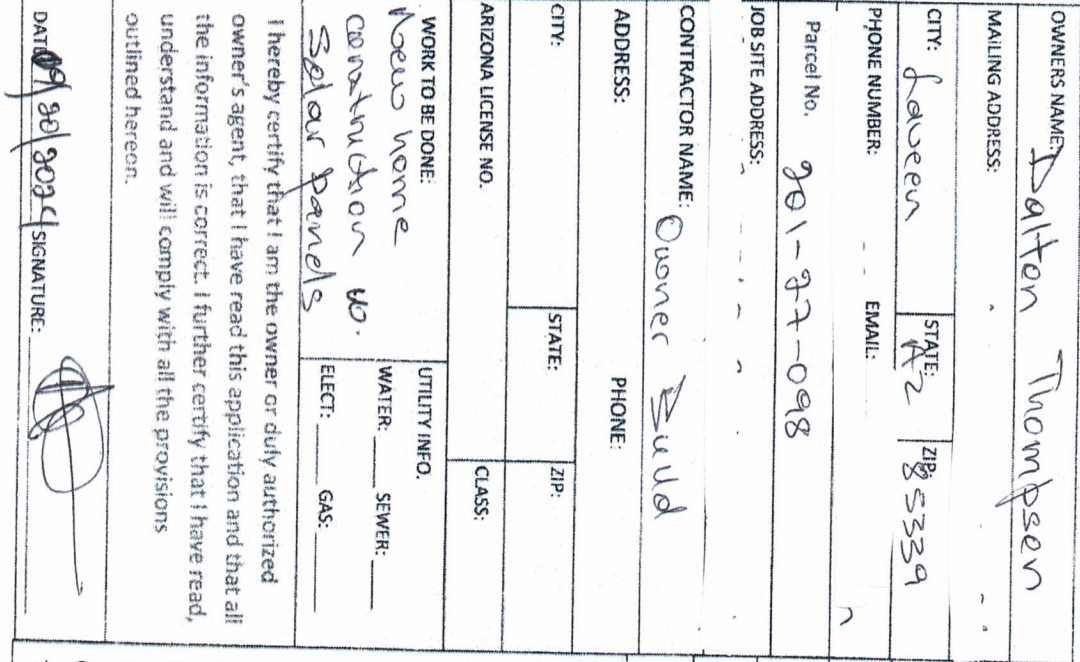 OWNERS NAME: Dalton Thompson
MAILING ADDRESS:
CITY: Laveen STATE: AZ ZIP: 85339
PHONE NUMBER: EMAIL:
Parcel No. 201-77-098
JOB SITE ADDRESS:
CONTRACTOR NAME: Owner Build
ADDRESS: PHONE:
CITY: STATE: ZIP:
ARIZONA LICENSE NO. CLASS:
WORK TO BE DONE: UTILITY INFO.
New home WATER:____ SEWER:____
construction w. ELECT:____ GAS:____
Solar panels
I hereby certify that I am the owner or duly authorized
owner's agent, that I have read this application and that all
the information is correct. I further certify that I have read,
understand and will comply with all the provisions
outlined hereon.
DATE 09/20/2024 SIGNATURE: